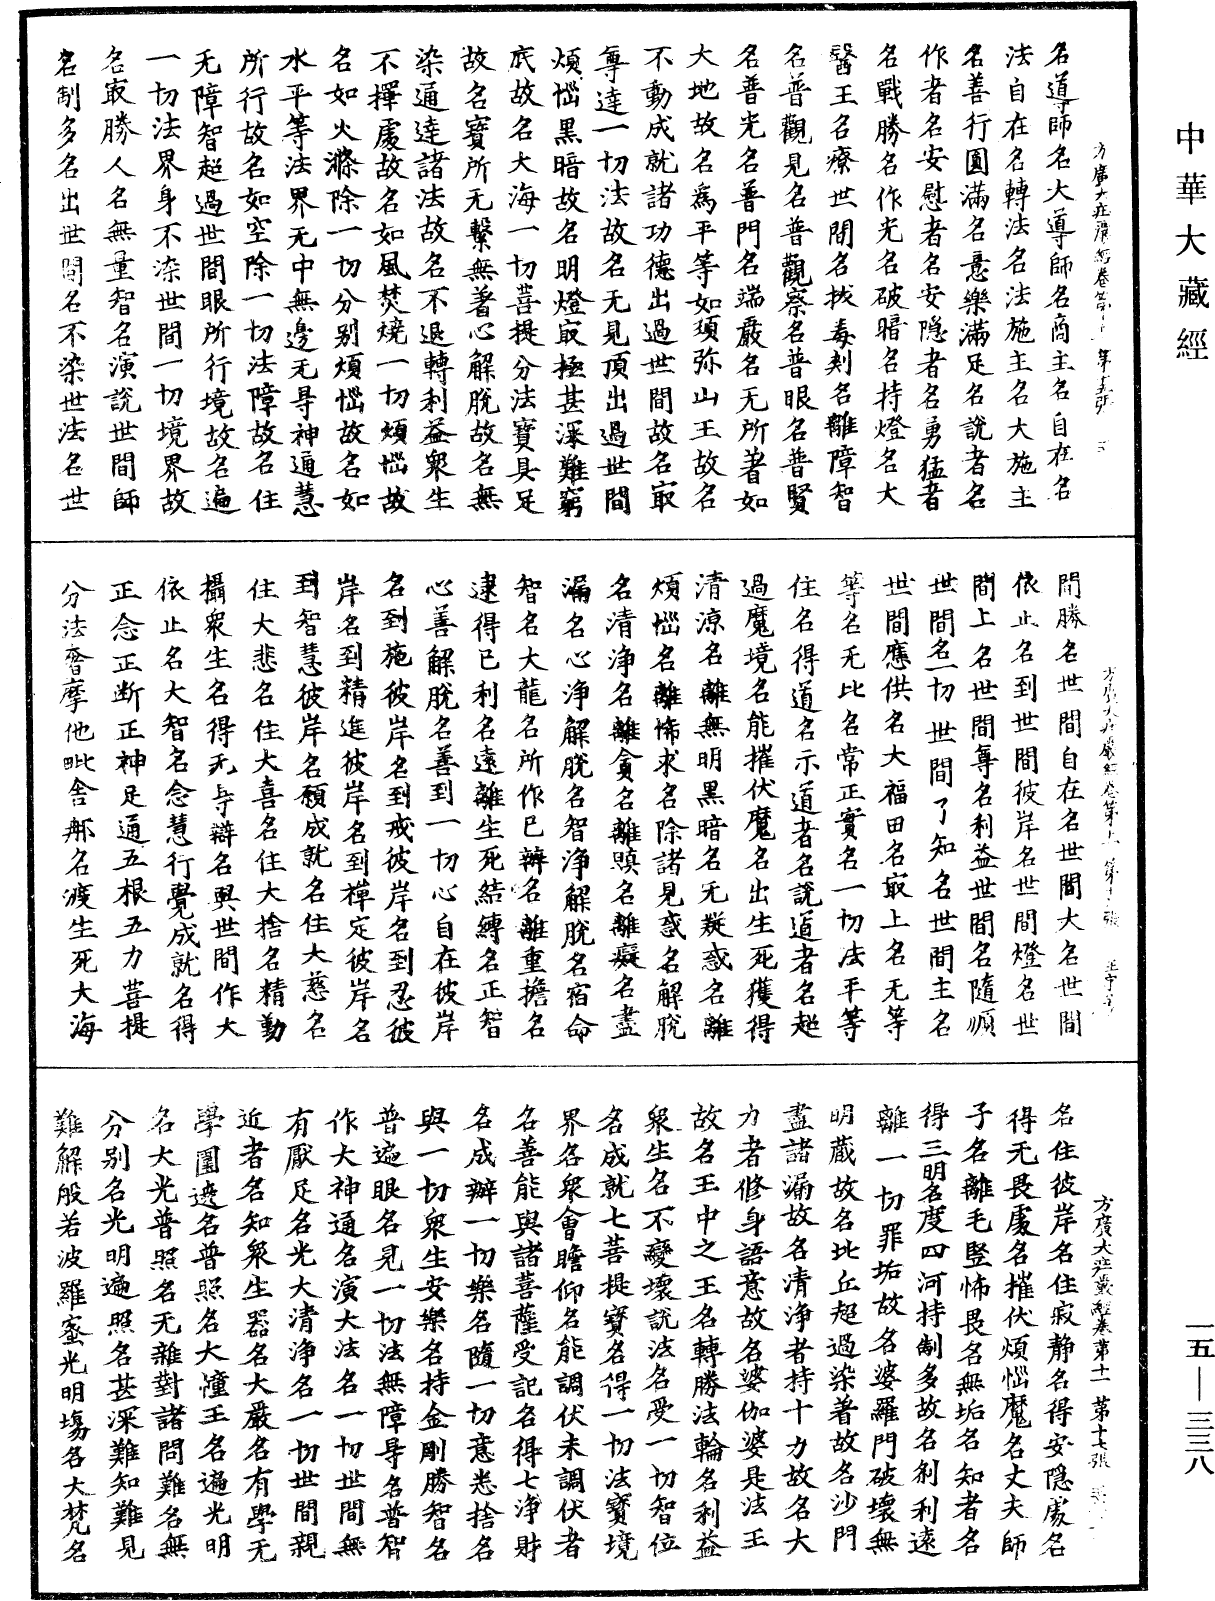 中華大藏經
名導師名大導師名商主名自在名
法自在名轉法名法施主名大施主
名善行圓滿名意樂滿足名說者名
作者名安慰者名安隱者名勇猛者
名戰勝名作光名破暗名持燈名大
醫王名療世間名拔毒刾名離障智
名普觀見名普觀察名普眼名普賢
名普光名普門名端嚴名无所著如
大地故名為平等如湏弥山王故名
不動成就諸功德出過世間故名㝡
尊達一切法故名无見頂出過世間
煩惱黑暗故名明燈㝡極甚深難窮
底故名大海一切菩提分法寶具足
故名寶所无繫無著心解脫故名無
染通達諸法故名不退轉利益衆生
不擇處故名如風焚燒一切煩惱故
名如火滌除一切分別煩惱故名如
水平等法界无中無邊无㝵神通慧
所行故名如空除一切法障故名住
无障智超過世間眼所行境故名遍
一切法界身不染世間一切境界故
名㝡勝人名無量智名演說世間師
名制多名出世間名不染世法名世
間勝名世間自在名世間大名世間
依止名到世間彼岸名世間燈名世
間上名世間尊名利益世間名隨順
世間名一切世間了知名世間主名
世間應供名大福田名㝡上名无等
等名无比名常正實名一切法平等
住名得道名示道者名說道者名超
過魔境名能摧伏魔名出生死獲得
清涼名離無明黑暗名无疑惑名離
煩惱名離悕求名除諸見惑名解脫
名清淨名離貪名離瞋名離癡名盡
漏名心淨解脫名智淨解脫名宿命
智名大龍名所作已辦名離重擔名
逮得已利名遠離生死結縛名正智
心善解脫名善到一切心自在彼岸
名到施彼岸名到戒彼岸名到忍彼
岸名到精進彼岸名到禪定彼岸名
到智慧彼岸名願成就名住大慈名
住大悲名住大喜名住大捨名精勤
攝衆生名得无㝵辯名與世間作大
依止名大智名念慧行覺成就名得
正念正断正神足通五根五力菩提
分法奢摩他毗舍那名渡生死大海
名住彼岸名住寂静名得安隱處名
得无畏處名摧伏煩惱魔名丈夫師
子名離毛竪怖畏名無垢名知者名
得三明名度四河持制多故名刹利遠
離一切罪垢故名婆羅門破壞無
明藏故名比丘超過染著故名沙門
盡諸漏故名清淨者持十力故名大
力者修身語意故名婆伽婆是法王
故名王中之王名轉勝法輪名利益
衆生名不變壞說法名受一切智位
名成就七菩提寶名得一切法寶境
界名衆會瞻仰名能調伏未調伏者
名善能與諸菩薩受記名得七淨財
名成辦一切樂名隨一切意悉捨名
與一切衆生安樂名持金剛勝智名
普遍眼名見一切法無障㝵名普智
作大神通名演大法名一切世間無
有厭足名光大清淨名一切世間親
近者名知衆生器名大嚴名有學无
學圍遶名普照名大憧王名遍光明
名大光普照名无雜對諸問難名無
分別名光明遍照名甚深難知難見
難解般若波羅蜜光明塲名大梵名
方廣大莊嚴經卷第十一 第十七張
一五—三三八